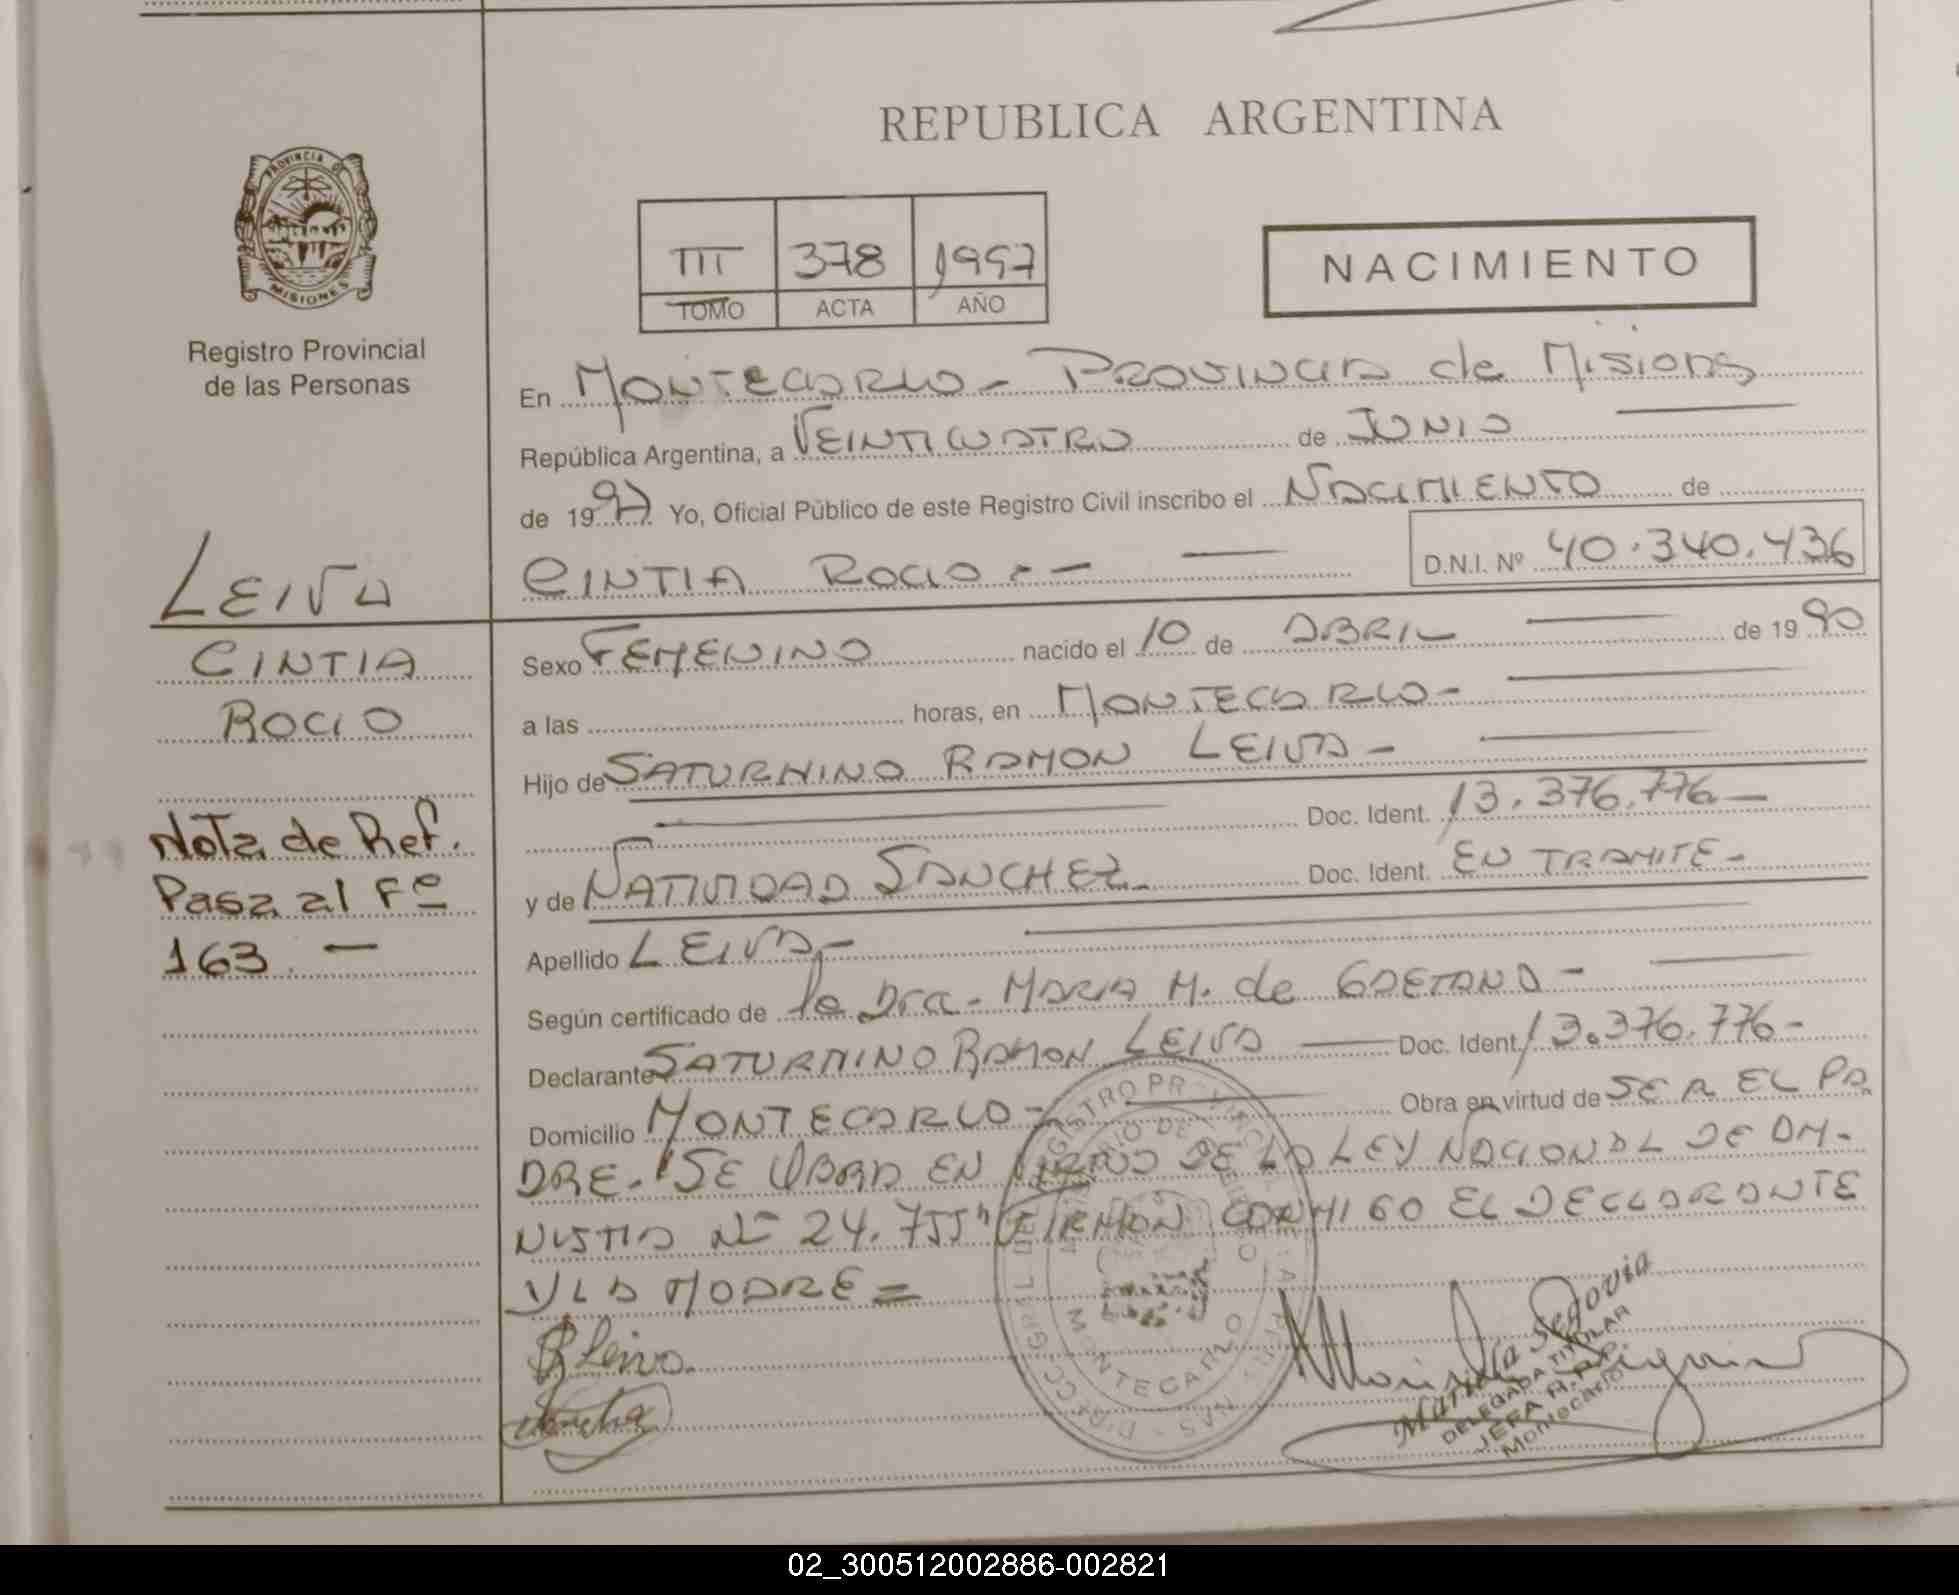 REPUBLICA ARGENTINA
PROVINCIA DE
MISIONES
Registro Provincial
de las Personas
III 378 1997
TOMO ACTA AÑO
NACIMIENTO
En MONTECARLO - PROVINCIA de Misiones
República Argentina, a VEINTICUATRO de JUNIO
de 1997 Yo, Oficial Público de este Registro Civil inscribo el NACIMIENTO de
CINTIA ROCIO - - D.N.I. Nº 40.340.436
LEIVA
CINTIA
ROCIO
Nota de Ref.
Pasa al Fº
163. -
Sexo FEMENINO nacido el 10 de ABRIL de 1990
a las horas, en MONTECARLO -
Hijo de SATURNINO RAMON LEIVA -
Doc. Ident. 13.376.776 -
y de NATIVIDAD SANCHEZ - Doc. Ident. EN TRAMITE -
Apellido LEIVA -
Según certificado de la Dra. MARIA M. de GAETANO -
Declarante SATURNINO RAMON LEIVA Doc. Ident. 13.376.776 -
Domicilio MONTECARLO - Obra en virtud de SER EL PA
DRE. "SE OBRA EN VIRTUD DE LA LEY NACIONAL DE AM-
NISTIA Nº 24.755" FIRMAN CONMIGO EL DECLARANTE
Y LA MADRE =
Leiva
MONTECARLO
Marisila Segovia
DELEGADA TITULAR
JEFA
Montecarlo
02_300512002886-002821